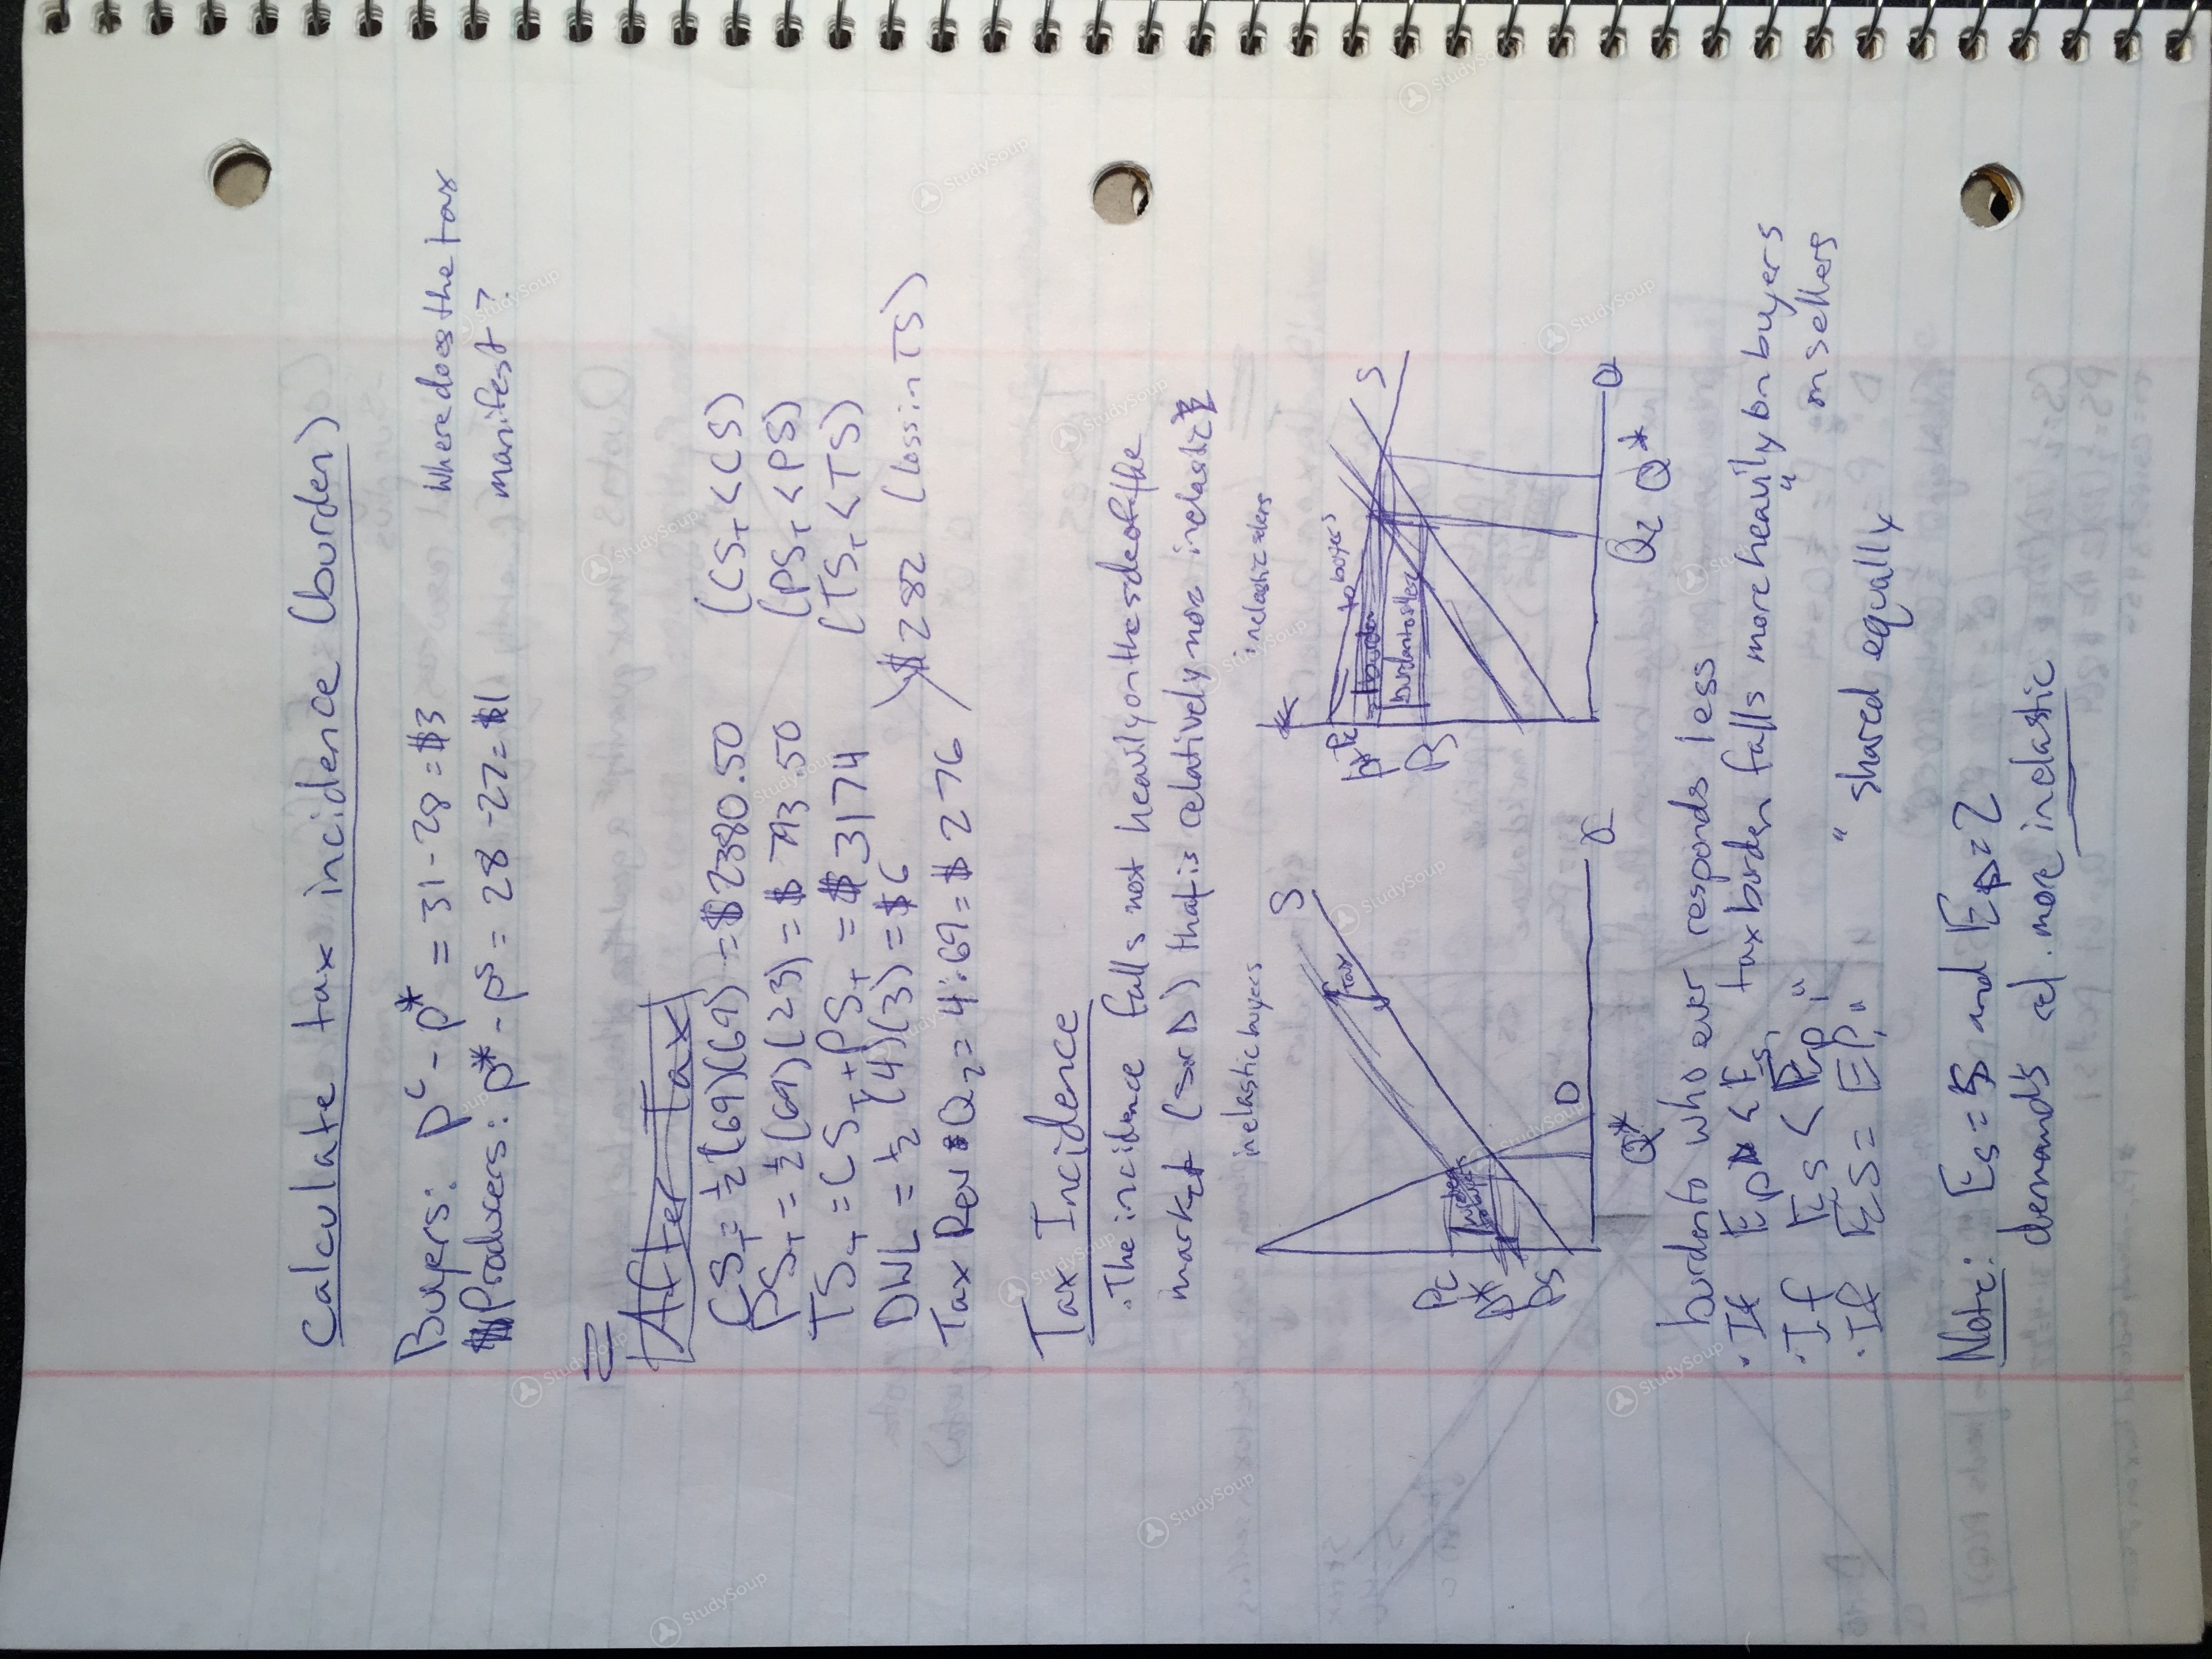 Calculate tax incidence (burden)
Buyers: Pᶜ - P* = 31 - 28 = $3
Where does the tax
manifest?
Producers: P* - Pˢ = 28 - 27 = $1
After Tax
CS_T = ½(69)(69) = $2380.50 (CS_T < CS)
PS_T = ½(69)(23) = $793.50 (PS_T < PS)
TS_T = CS_T + PS_T = $3174 (TS_T < TS)
DWL = ½(4)(3) = $6
Tax Rev = Q₂ = 4·69 = $276
$282 (loss in TS)
Tax Incidence
· The incidence falls most heavily on the side of the
market (S or D) that is relatively more inelastic
inelastic buyers
S
Tax
Pc
P*
Ps
D
Q*
Q
: inelastic sellers
S
to buyers
burden
burden to sellers
Pc
Ps
Q₂ Q*
Q
burden to who ever responds less
· If ED < ES, tax burden falls more heavily on buyers
· If ES < ED, " " on sellers
· If ES = ED, " " shared equally
Note: Es = 5 and ED = 2
demand is rel. more inelastic
StudySoup